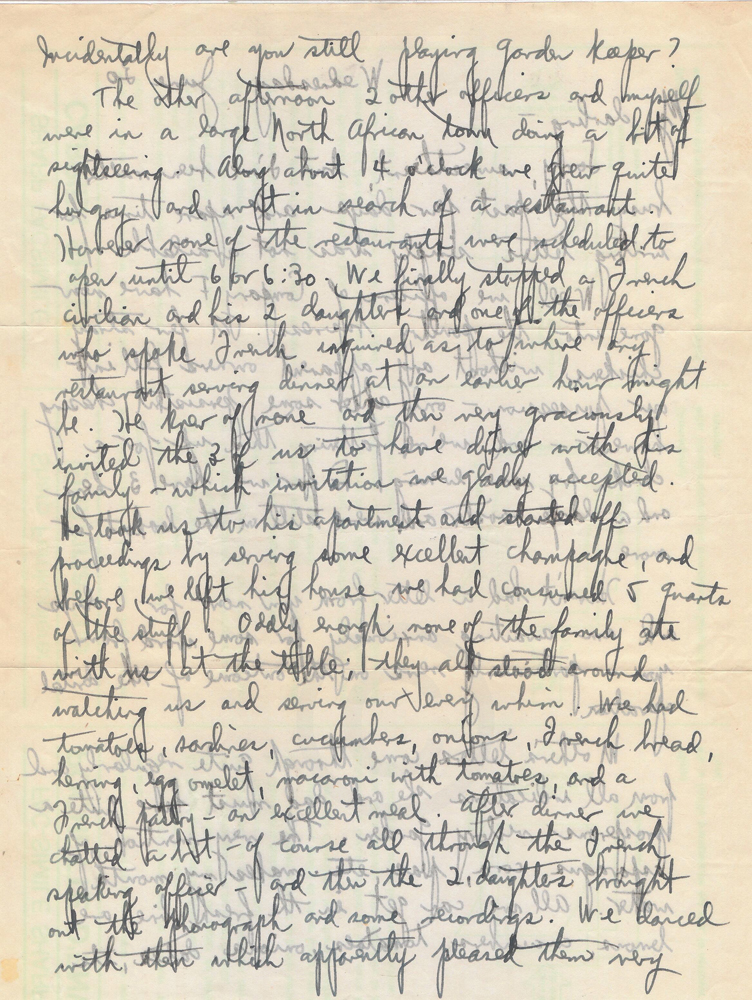 Incidentally are you still playing garden keeper?
The other afternoon 2 other officers and myself
were in a large North African town doing a bit of
sightseeing. Along about 4 o'clock we grew quite
hungry and went in search of a restaurant.
However none of the restaurants were scheduled to
open until 6 or 6:30. We finally stopped a French
civilian and his 2 daughters and one of the officers
who spoke French inquired as to where any
restaurant serving dinner at an earlier hour might
be. He knew of none and then very graciously
invited the 3 of us to have dinner with his
family - which invitation we gladly accepted.
He took us to his apartment and started off
proceedings by serving some excellent champagne, and
before we left his house we had consumed 5 quarts
of the stuff. Oddly enough none of the family ate
with us at the table; they all stood around
watching us and serving our every whim. We had
tomatoes, sardines, cucumbers, onions, French bread,
herring, egg omelet, macaroni with tomatoes, and a
French pastry - an excellent meal. After dinner we
chatted a bit - of course all through the French
speaking officer - and then the 2 daughters brought
out the phonograph and some recordings. We danced
with them which apparently pleased them very